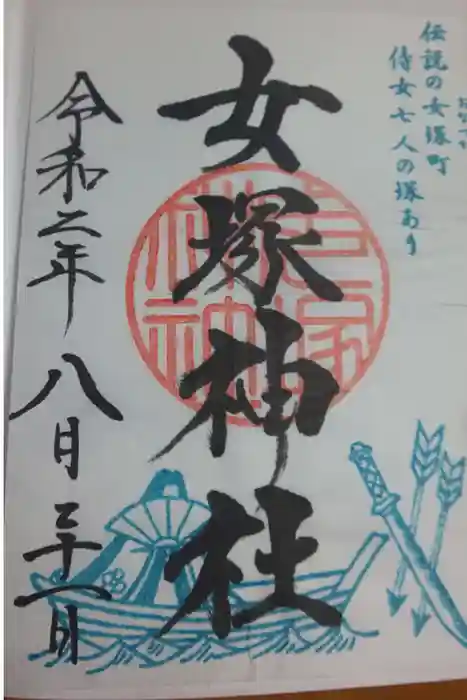 伝説の女塚町
侍女七人の塚あり
女塚神社
令和二年八月二十一日